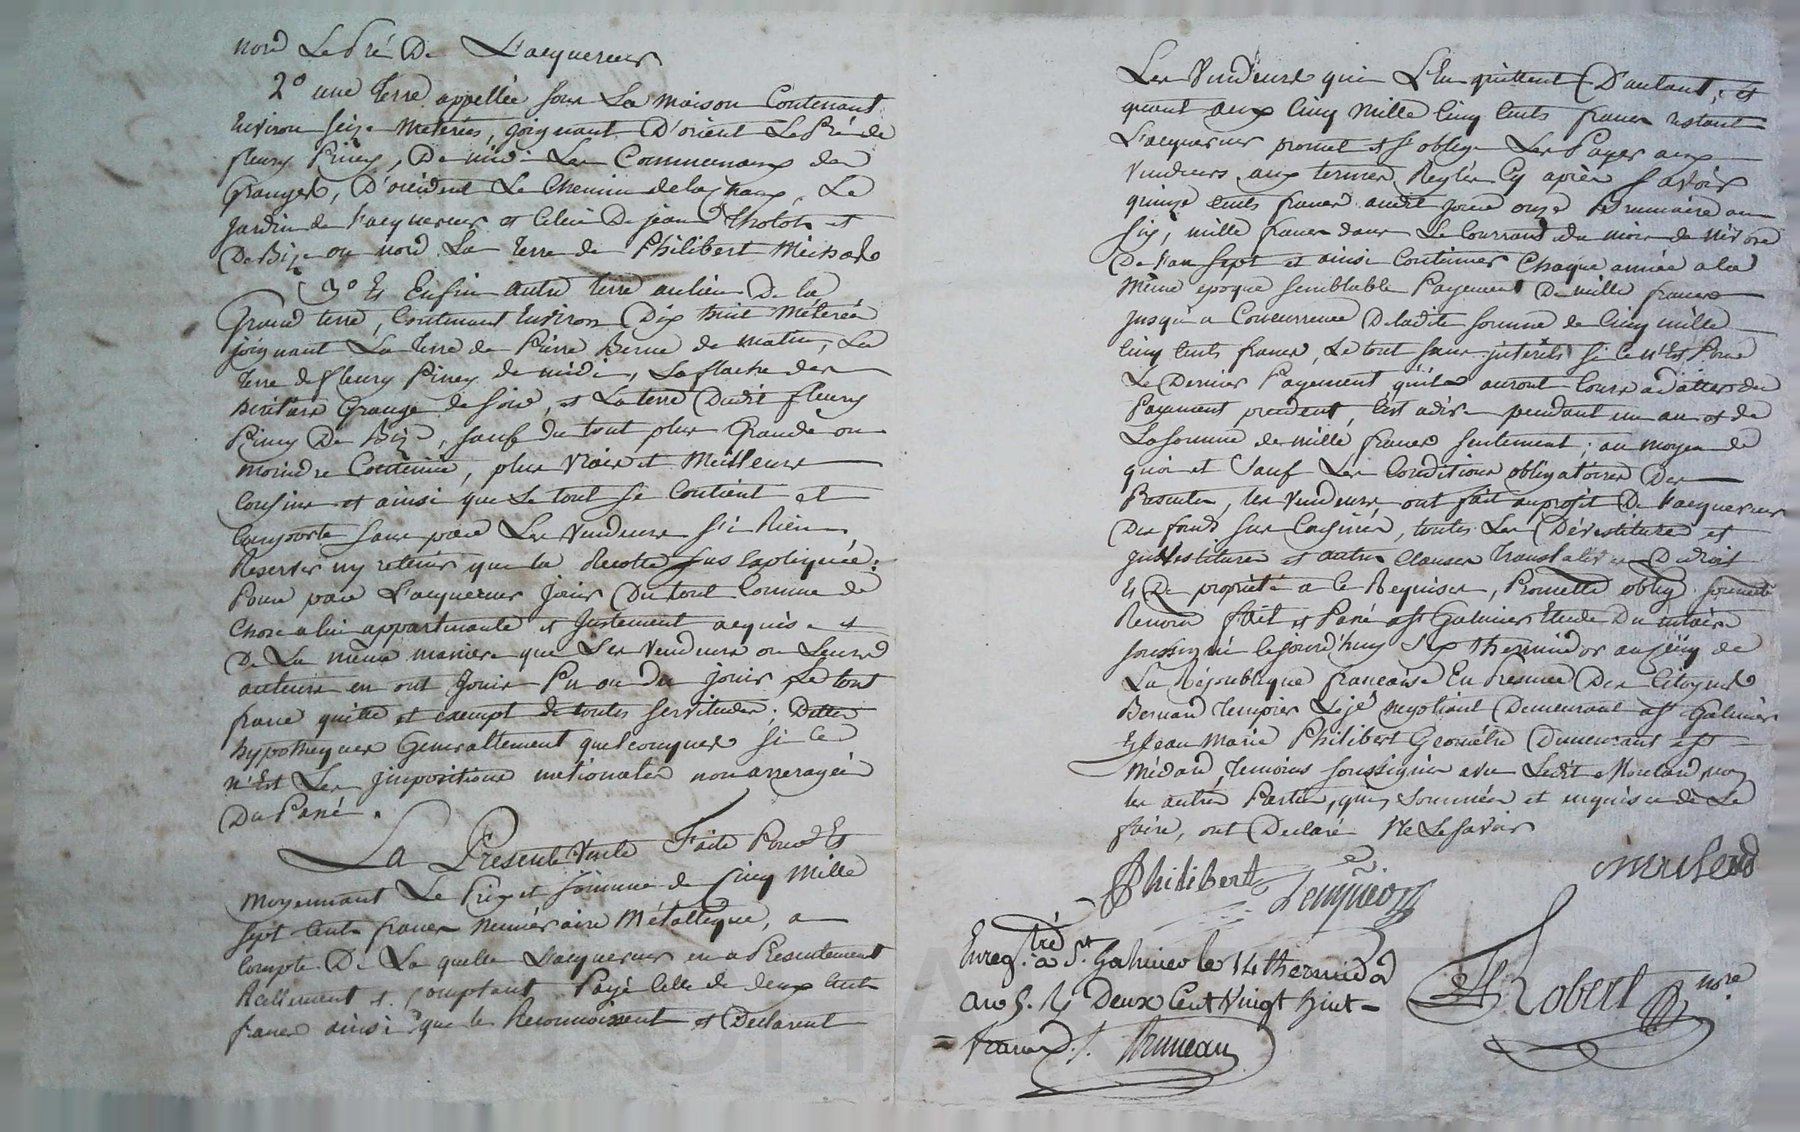 nord Le Pré De L'acquereur
2° une Terre appellée sous La maison Contenant
Environ seize Meterées, joignant D'orient Le Pré de
fleury Piney, De midi Les Communaux des
Granges, D'occident Le Chemin de la Chaux, Le
Jardin de L'acquereur et Celui De jean Cholot et
De Bize ou nord La Terre de Philibert Michard
3° Et Enfin autre Terre au lieu De La
Grand terre, Contenant Environ Dix huit Meterées
joignant La Terre de Pierre Berne de matin, La
Terre de fleury Piney de midi, La flache des
héritiers Grange de soir, et La terre Dudit fleury
Piney De Bize, sauf du tout plus Grande ou
moindre Contenue, plus Vrais et Meilleurs
Confins et ainsi que Le tout se Contient et
Comporte sans par Les Vendeurs s'i Rien
Reserver ny retenir que la Recolte sus Expliquée;
Pour par L'acquereur Jouir Du tout Comme de
Chose a lui appartenante et Justement acquise et
De La même maniere que Les Vendeurs ou Leurs
auteurs en ont Joui Pu ou Du jouir, Le tout
franc quitte et exempt de toutes servitudes, Dettes
hypotheques Generallement quelconques si ce
n'Est Les jmpositions nationales non arreragées
Du Passé.
La Presente Vente Faite Pour Et
Moyennant Le Prix et somme de Cinq Mille
sept Cents francs Numéraire Métallique, a
Compte De La quelle L'acquereur en a Presentement
Réellement et Comptant Payé Celle de deux Cents
francs ainsi que le Reconnoissent et Declarent
Les Vendeurs qui L'En quittent D'autant, et
quant aux Cinq Mille Cinq Cents francs restant
L'acquereur promet et s'oblige Les Payer aux
Vendeurs aux termes Reglés Cy après Savoir
quinze Cents francs audit jour onze Brumaire an
six, mille francs dans Le Courrand du mois de Nivose
De L'an Sept et ainsi Continuer Chaque année a la
Même epoque semblable Payement De mille francs
jusqu'a Concurrence De ladite somme de Cinq mille
Cinq Cents francs, Le tout sans jnterêts si ce n'Est Pour
Le Dernier Payement qu'ils auront Cours a datter du
Payement precedent, C'est a dire pendant un an et de
La somme de mille francs seulement; au moyen de
quoi et Sauf Les Conditions obligatoires Des
Presentes, les Vendeurs ont fait au profit De L'acquereur
Du fond sus Confiné, toutes Les Dévestitures et
jnvestitures et autres Clauses translatives De droit
Et De proprieté a ce Requises, Promette oblig. soumett.
Renon. fait et Passé a St Galmier Etude Du notaire
soussigné le jourd'huy Six thermidor an cinq de
La République francaise En Presence Des Citoyens
Bernard Tempier Negotiant Demeurant a St Galmier
Et Jean Marie Philibert Geométre Demeurant a St
Médard, Temoins soussignés avec Ledit non
les autres Parties qui, sommées et enquises de Le
faire, ont Declaré Ne Le savoir
Philibert Tempier
Enreg.tré a St Galmier le 14 thermidor
an 5. Deux Cent Vingt huit
francs. Bruneau
Robert nore